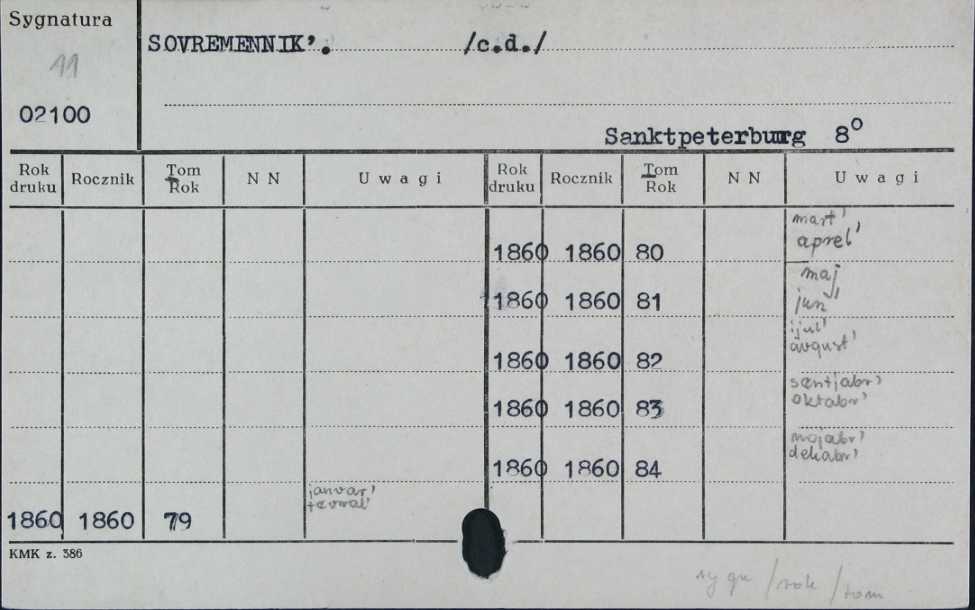 Sygnatura
SOVREMENNIK'. /c.d./
11
02100
Sanktpeterburg 8°
Rok druku Rocznik Tom Rok N N Uwagi Rok druku Rocznik Tom Rok N N Uwagi
mart'
1860 1860 80 aprel'
maj
1860 1860 81 jun'
ijul'
1860 1860 82 avgust'
sentjabr'
1860 1860 83 oktabr'
nojabr'
1860 1860 84 dekabr'
janvar'
fevral'
1860 1860 79
KMK z. 386
sygn /rok /tom